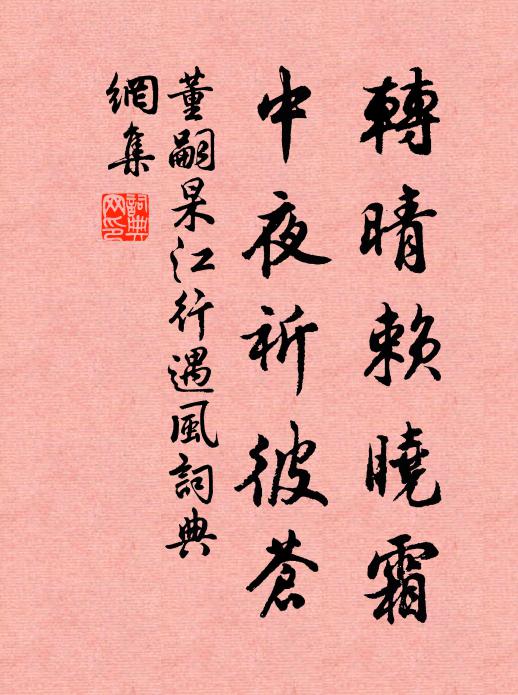 轉晴賴曉霜
中夜祈彼蒼
董嗣杲江行遇風詞典
網集
詞典網印